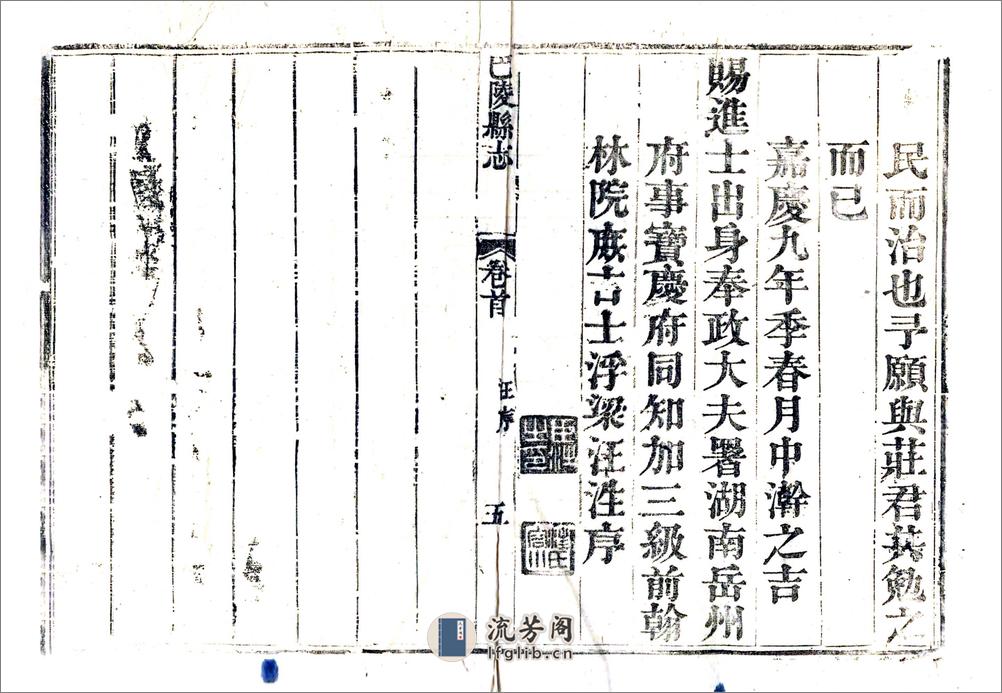 民而治也予願與莊君共勉之
而已
嘉慶九年季春月中澣之吉
賜進士出身奉政大夫署湖南岳州
府事寶慶府同知加三級前翰
林院庶吉士浮梁汪泩序
巴陵縣志
卷首
汪序
五
流芳阁
lfglib.cn